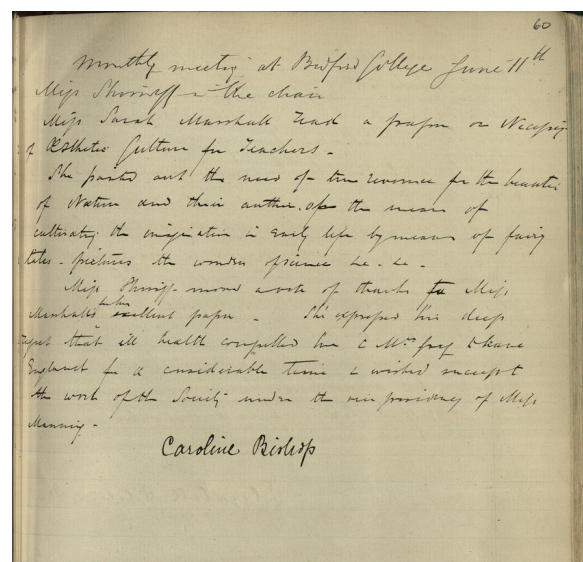 60
Monthly meeting at Bedford College June 11th
Miss Shirreff in the chair
Miss Sarah Marshall read a paper on Necessity
of Æsthetic Culture for Teachers -
She pointed out the need of true reverence for the beauties
of Nature and their author, of the means of
cultivating the imagination in early life by means of fairy
tales - pictures the wonders of science &c. &c. -
Miss Shirreff moved a vote of thanks to Miss
Marshall excellent paper - She expressed her deep
regret that ill health compelled her & Mrs Grey to leave
England for a considerable time & wished success to
the work of the Society under the vice presidency of Miss
Manning -
Caroline Bishop